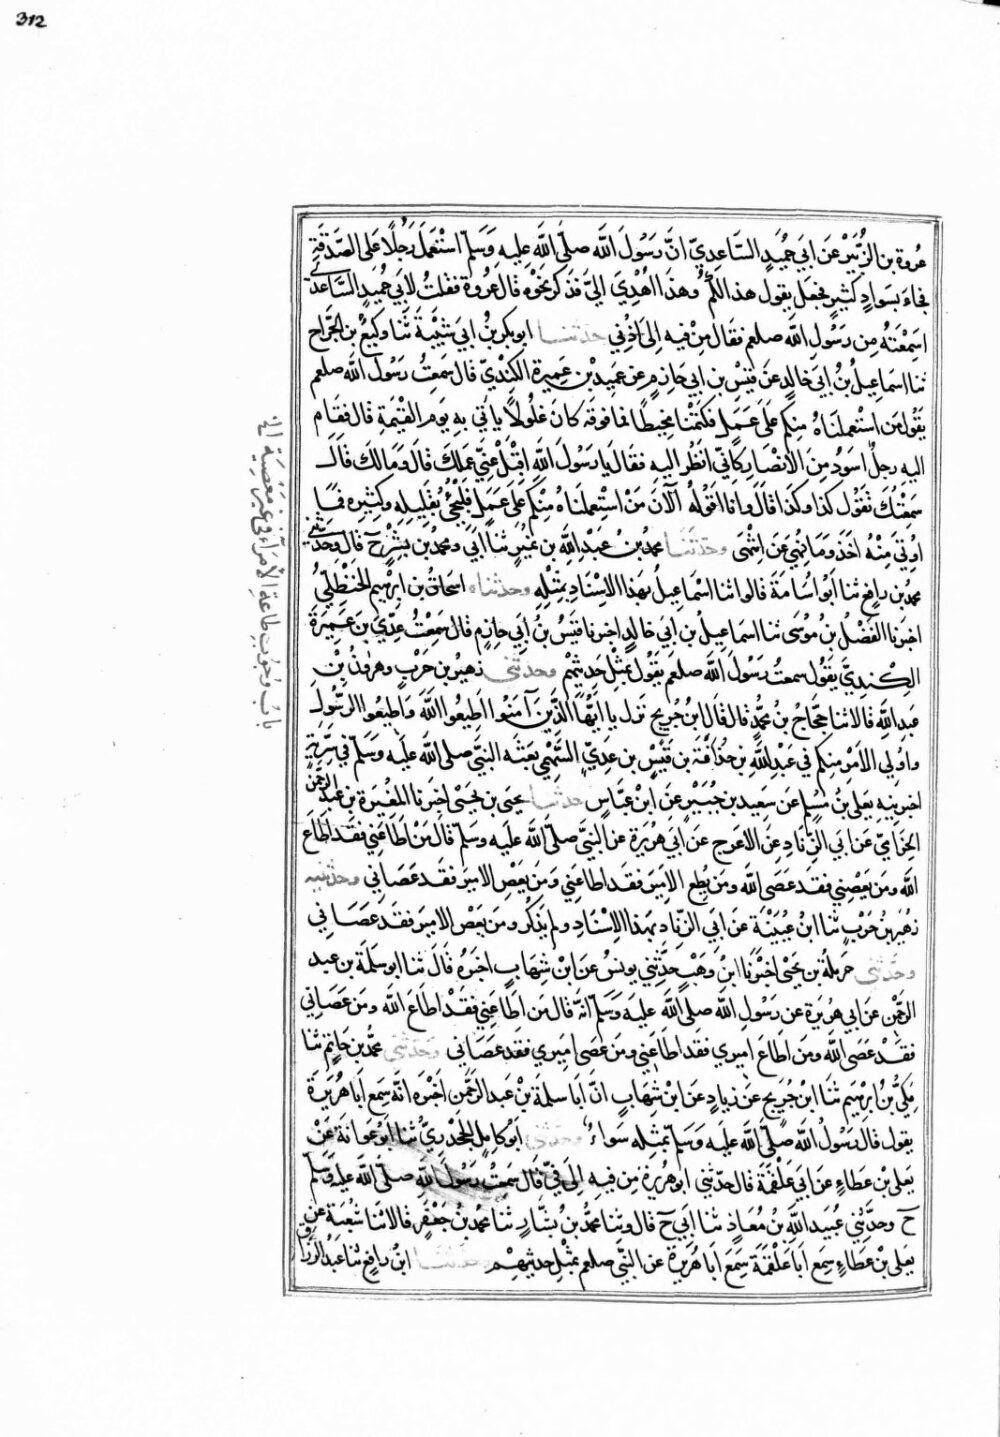 312
عروة بن الزُّبَيْر عن ابي حُمَيدٍ السَّاعِدِيّ انَّ رَسُولَ الله صلّى الله عليهِ وَسَلّم استْعَملَ رَجُلًا على الصّدقةِ
فجاءَ بسوادٍ كثيرٍ فجعل يقول هذا لكم وهذا اهْدِيَ اليَّ فذكر نحوَهُ قال عروة فقلتُ لأبي حُميدٍ السَّاعديّ
اسمِعْتَهُ مِن رسُولِ الله صلعم فقال مِن فيهِ الى اذُني حدثنا ابو بكر بنُ ابي شَيْبَةَ ثنا وكيعُ بن الجرَّاح
ثنا اسماعيلُ بنُ ابي خالدٍ عن قيْسِ بن ابي حازِمٍ عن عمِيرة الكِنْدِيّ قال سمِعتُ رسولَ الله صلعم
يقُول من استعملنَاهُ منكم عَلى عَمَلٍ فكتَمْنا مِخيطا فما فوقه كان غُلولًا ياتي بهِ يوم القيمةِ قال فقام
اليه رجلٌ اسْودُ مِنَ الانْصَارِ كانّي انظُر اليهِ فقال يا رسولَ الله اقبَلْ عنّي عملك قال ومالك قال
سمعْتكَ تقول كذا وكذا قال وانا اقولُهُ الآنَ مَنْ استعملناهُ منكم عَلى عَملٍ فليَجئ بقليلِهِ وكثيرِهِ فما
اوتيَ مِنْهُ اخذ وما نُهِيَ عَنه انتهى وحدثنا محمدُ بنُ عبدِ اللهِ بن نُميرٍ ثنا ابي ومحمدُ بن بشْرٍ ح قال وحدثني
محمدُ بن رافِعٍ ثنا ابُو اُسامَةَ قالوا ثنا اسْماعيلُ بهَذا الاسْنَادِ بمثْلِهِ وحدثناه اسحاق بن ابرهيم الحنظليُّ
اخبرنا الفَضْلُ بنُ مُوسَى ثنا اسماعيلُ بن ابي خالدٍ اخبرنا قيسُ بنُ ابي حازِمٍ قال سمعتُ عدِيَّ بن عَمِيرَة
الكِنْدِيَّ يقول سمعتُ رسُولَ الله صلعم يقول بمثْلِ حديثهم وحدثني زهيرُ بن حَرْبٍ وهرونُ بن
عبدِ اللهِ قالا ثنا حجّاجُ بنُ محمّدٍ قال قال ابنُ جُريج نزل يا ايّها الذين آمنوا اطيعوا الله واطيعوا الرّسُول
واولي الامر منكم في عبدِ اللهِ بن حُذافَة بن قيسِ بن عَدِيٍّ السَّهْمِي بَعَثه النبي صلى الله عليه وسلم في سَرِيّة
اخبرنيهِ يعلى بنُ مُسلِم عن سعِيد بن جُبَيْرٍ عن ابن عَبّاسٍ حدثنا يحيى بن يحيى اخبرنا المغيرة بن عبد الرحمن
الحِزَاميّ عن ابي الزّنادِ عن الاعرج عن ابي هُريرَة عن النبيّ صلّى الله عليه وسلم قال مَنْ اطاعني فقد اطاعَ
الله ومن يعْصِني فقد عَصَى الله ومَن يُطِع الامير فقد اطاعني ومن يعصِ الامير فقد عصاني وحدثنيه
زهيرُ بن حربٍ ثنا ابنُ عُيَيْنَة عن ابي الزّناد بهذا الاسْنَادِ ولم يَذكر ومن يَعصِ الامير فقد عصاني
وحدثني حرملة بن يحيى اخبرنا ابنُ وَهبٍ حدّثني يونسُ عن ابن شِهَابٍ اخبره قال ثنا ابو سلمة بن عبد
الرحمٰن عن ابي هُريرَة عن رسولِ الله صلى الله عليه وسلّم انّه قال من اطاعني فقدْ اطاعَ الله ومَن عَصَاني
فقدْ عصَى الله ومن اطاع اميري فقد اطاعني ومن عصى اميري فقد عصاني وحدثني محمّدُ بن حاتِم ثنا
مكّيُّ بنُ ابرْهيم ثنا ابنُ جُريجٍ عن زيادٍ عن ابْن شِهابٍ انّ ابا سلمة بن عبد الرحمن اخبره انّه سمع ابا هُريرَة
يقول قال رسُولُ الله صلّى الله عليه وسلم بمثله سواءً وحدثني ابو كامِلٍ الجَحْدَرِيُّ ثنا ابو عوانة عن
يعلى بن عطاءٍ عن ابي علْقمةَ قال حدّثني ابو هريرة مِن فيهِ الى فيّ قال سمعتُ رسولَ الله صلّى الله عليه وسلّم
ح وحدَّثني عبيد اللهِ بنُ مُعاذٍ ثنا ابي ح قال وثنا محمّدُ بنُ بشّارٍ ثنا محمدُ بنُ جعْفَرٍ قالا ثنا شعبة عن
يعلى بن عطاءٍ سمع ابا علقمَة سمِعَ ابا هُرَيرَة عن النّبي صلعم بمثلِ حديثهم وحدثنا ابنُ رافِعٍ ثنا عبدُ الرّزاق
بابُ وجُوبِ طاعَةِ الامراءِ في غير مَعْصِيَة